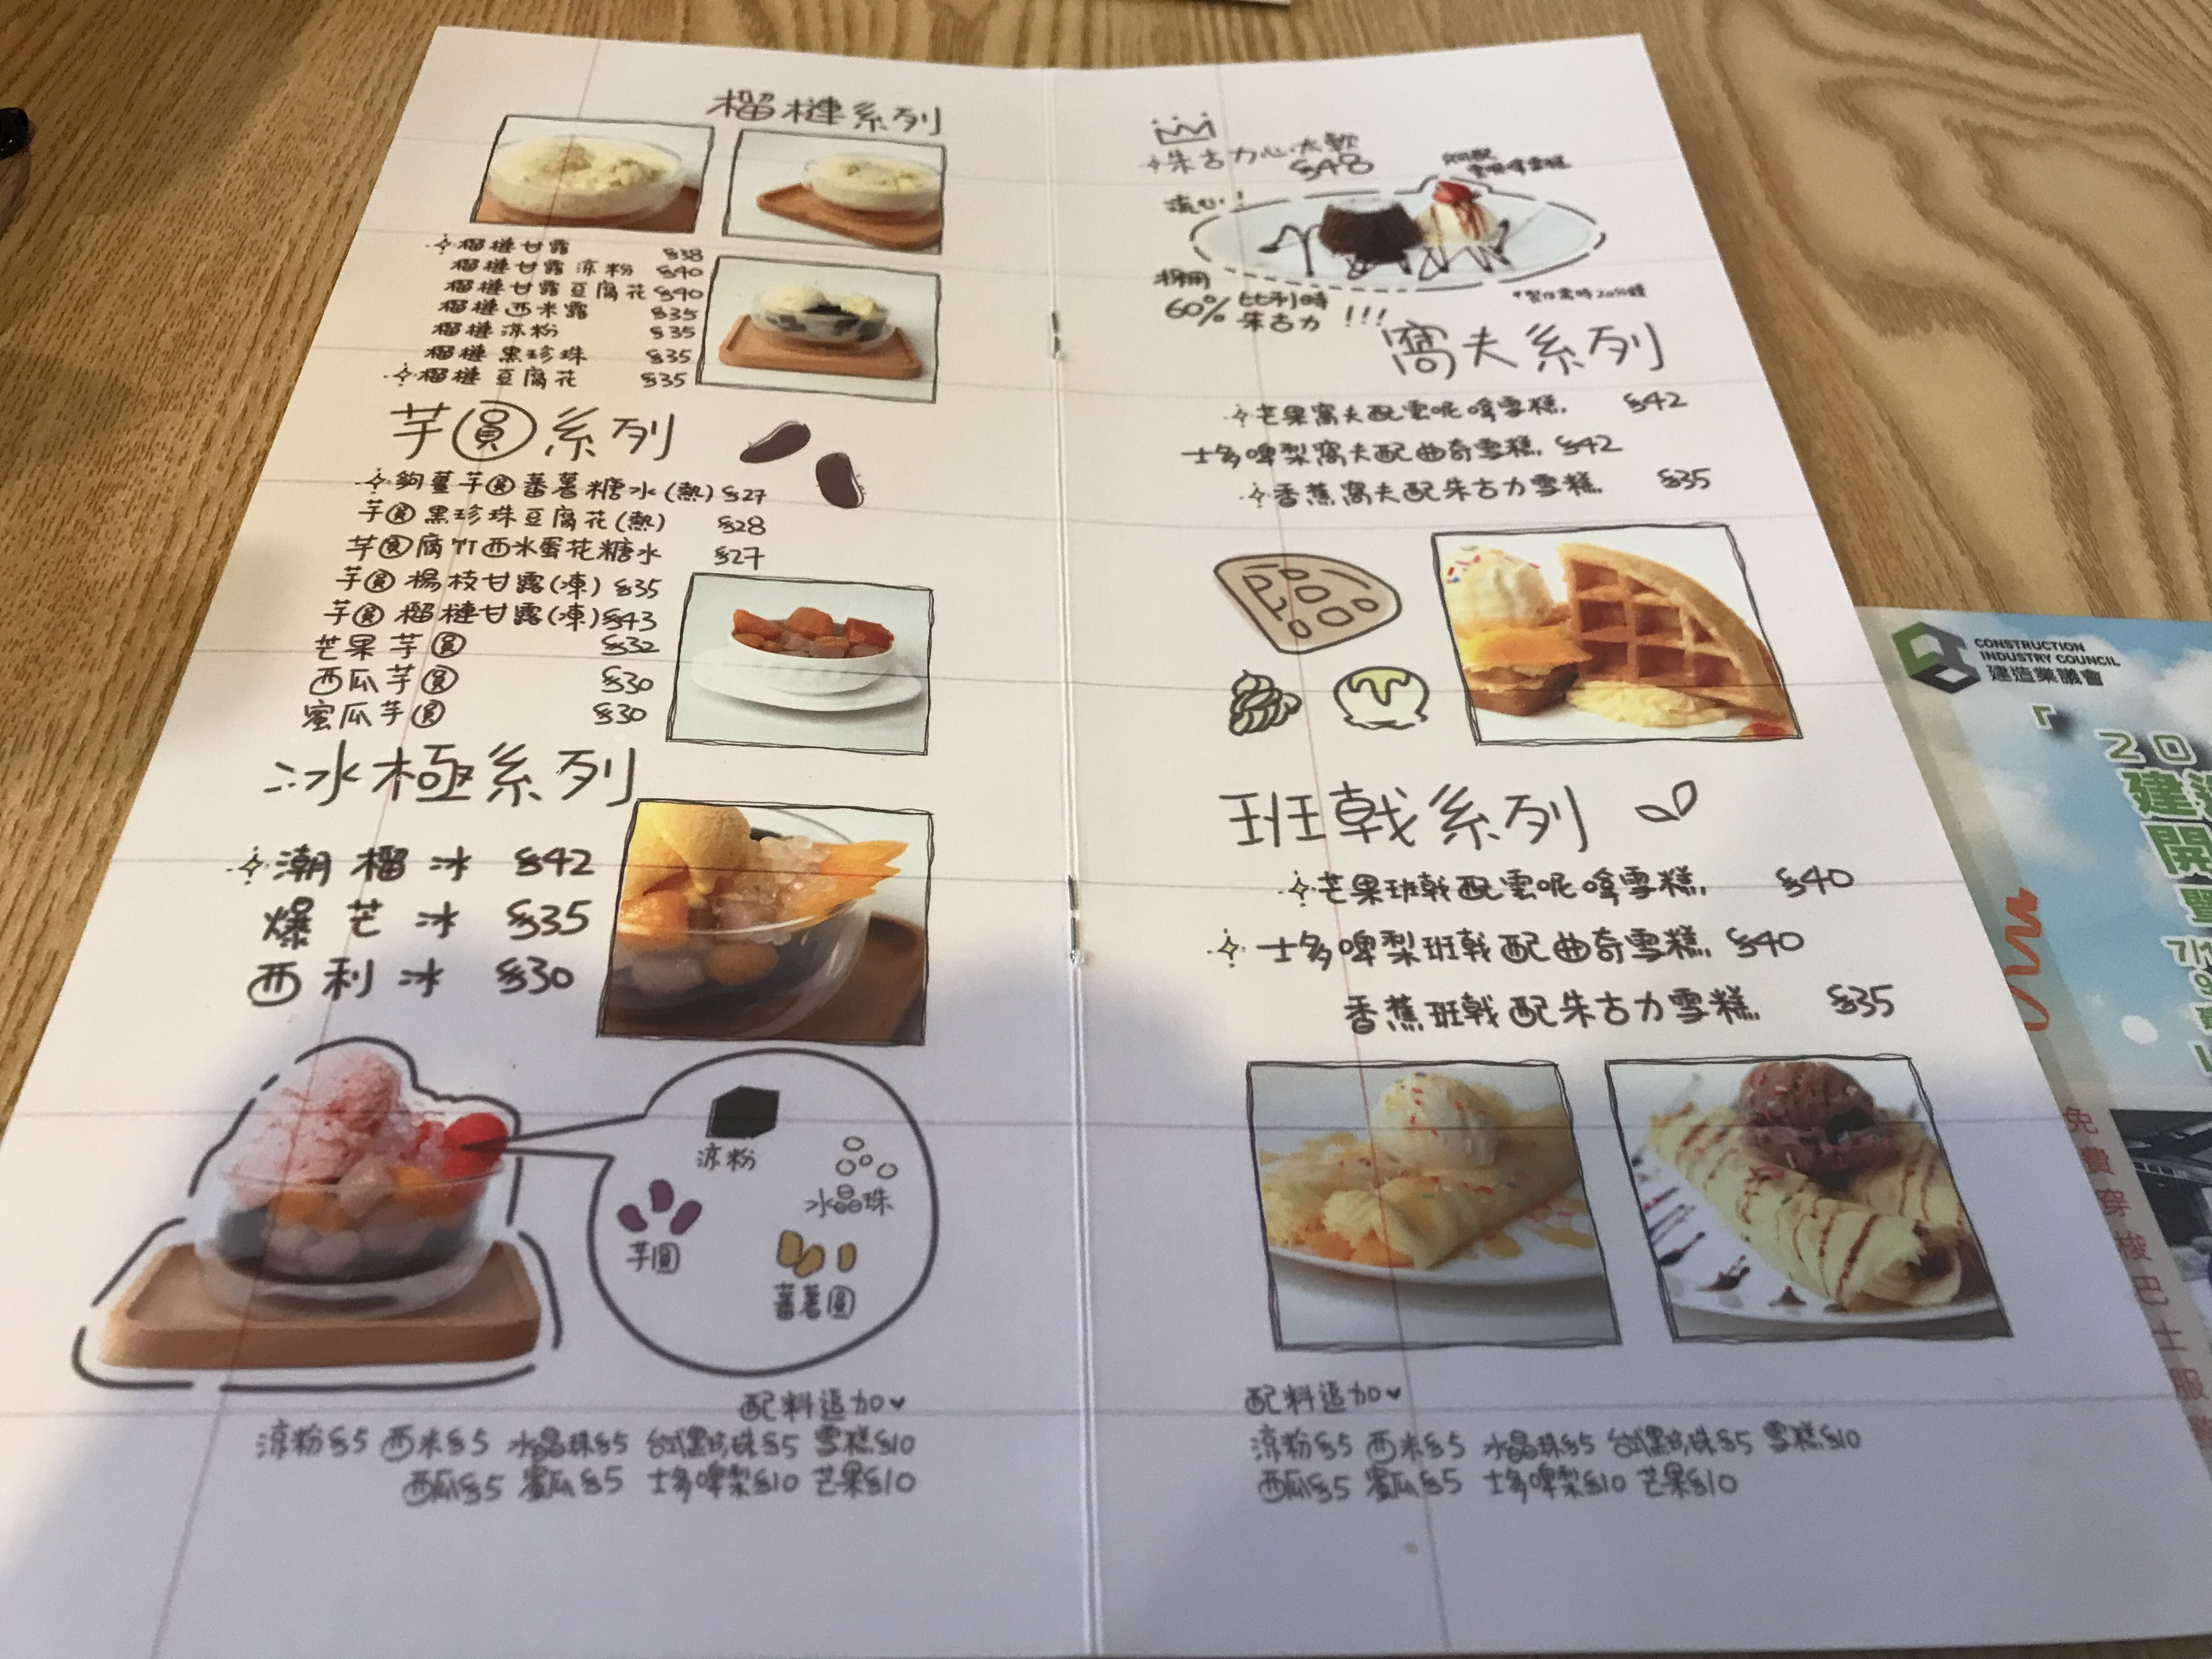 榴槤系列
榴槤甘露 $38
榴槤甘露涼粉 $40
榴槤甘露豆腐花 $40
榴槤西米露 $35
榴槤涼粉 $35
榴槤黑珍珠 $35
榴槤豆腐花 $35
芋圓系列
夠薑芋圓蕃薯糖水(熱) $27
芋圓黑珍珠豆腐花(熱) $28
芋圓腐竹西米蛋花糖水 $27
芋圓楊枝甘露(凍) $35
芋圓榴槤甘露(凍) $43
芒果芋圓 $32
西瓜芋圓 $30
蜜瓜芋圓 $30
冰極系列
潮榴冰 $42
爆芒冰 $35
西利冰 $30
涼粉
水晶珠
芋圓
蕃薯圓
配料追加♥
涼粉$5 西米$5 水晶珠$5 台式黑珍珠$5 雪糕$10
西瓜$5 蜜瓜$5 士多啤梨$10 芒果$10
朱古力心太軟
$48
流心!
採用
60% 比利時
朱古力 !!!
*製作需時20分鐘
窩夫系列
芒果窩夫配雲呢嗱雪糕. $42
士多啤梨窩夫配曲奇雪糕. $42
香蕉窩夫配朱古力雪糕. $35
班戟系列
芒果班戟配雲呢嗱雪糕. $40
士多啤梨班戟配曲奇雪糕. $40
香蕉班戟配朱古力雪糕. $35
配料追加♥
涼粉$5 西米$5 水晶珠$5 台式黑珍珠$5 雪糕$10
西瓜$5 蜜瓜$5 士多啤梨$10 芒果$10
CONSTRUCTION
INDUSTRY COUNCIL
建造業議會
20
建造
開
暨
免費穿梭巴士服